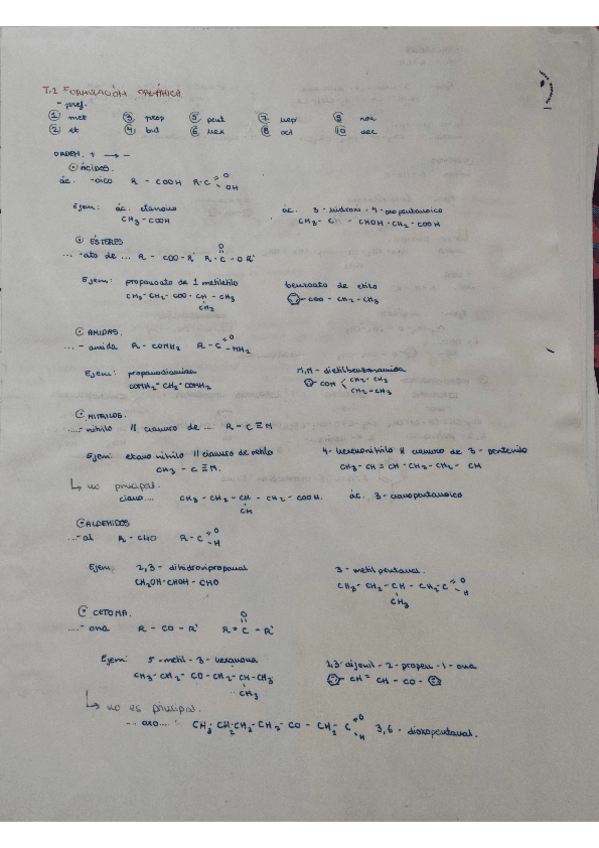 T.1 FORMULACIÓN ORGÁNICA
- pref.
① met ③ prop ⑤ pent ⑦ hep ⑨ non
② et ④ but ⑥ hex ⑧ oct ⑩ dec
ORDEN. + → -
ÁCIDOS.
ác. -oico R - COOH R-C =O - OH
Ejem: ác. etanoico ác. 3 - hidroxi - 4 - oxopentanoico
CH3 - COOH CH3 - C CHOH - CH2 - COOH
ÉSTERES
... -ato de ... R - COO - R' R - C - O R'
O
Ejem: propanoato de 1 metiletilo benzoato de etilo
CH3 - CH2 - COO - CH - CH3 - COO - CH2 - CH3
CH3
AMIDAS.
... - amida R - CONH2 R - C =O - NH2
Ejem: propanodiamida N,N - dietilbenzamida
CONH2 - CH2 - CONH2 CON CH2 - CH3
CH2 - CH3
NITRILOS.
... - nitrilo // cianuro de ... R - C ≡ N
Ejem: etano nitrilo // cianuro de metilo 4 - hexenonitrilo // cianuro de 3 - pentenilo
CH3 - C ≡ N. CH3 - CH = CH - CH2 - CH2 - CN
↳ no principal.
ciano.... CH3 - CH2 - CH - CH2 - COOH. ác. 3 - cianopentanoico
CN
ALDEHIDOS
... -al R - CHO R - C =O - H
Ejem: 2,3 - dihidroxipropanal 3 - metil pentanal.
CH2OH - CHOH - CHO CH3 - CH2 - CH - CH2 - C =O - H
CH3
CETONA.
... - ona R - CO - R' R - C - R'
O
Ejem: 5 - metil - 3 - hexanona 1,3 difenil - 2 - propen - 1 - ona
CH3 - CH2 - CO - CH2 - CH - CH3 CH = CH - CO -
CH3
↳ no es principal.
... oxo.... CH3 - CH2 - CH2 - CH2 - CO - CH2 - C =O - H 3,6 - dioxopentanal.